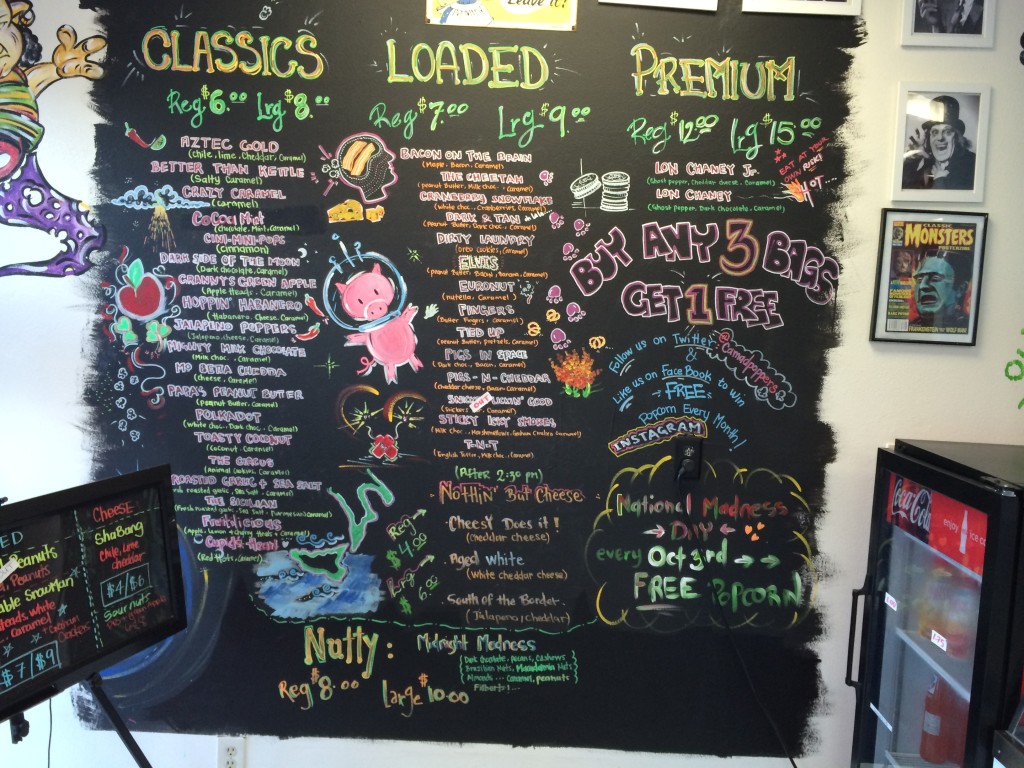 Leave it!
CLASSICS
Reg $6.00 Lrg $8.00
AZTEC GOLD
(chile, lime, cheddar, Caramel)
BETTER THAN KETTLE
(Salty Caramel)
CRAZY CARAMEL
(Caramel)
COCOA Mint
(chocolate, Mint, Caramel)
CINI-MINI-POPS
(cinnamon)
DARK SIDE OF THE MOON
(Dark chocolate, Caramel)
GRANNY'S GREEN APPLE
(Apple Heads, Caramel)
HOPPIN' HABANERO
(Habanero, Cheese, Caramel)
JALAPENO POPPERS
(Jalapeno, cheese, Caramel)
MIGHTY MILK CHOCOLATE
(Milk choc., Caramel)
MO BETTA CHEDDA
(cheese, Caramel)
PAPAS PEANUT BUTTER
(Peanut Butter, Caramel)
POLKADOT
(white choc., Dark choc., Caramel)
TOASTY COCONUT
(Coconut, Caramel)
THE CIRCUS
(Animal Cookies, Caramel)
ROASTED GARLIC + SEA SALT
(Fresh roasted garlic, Sea Salt, Caramel)
THE SICILIAN
(Fresh roasted garlic, Sea Salt, Parmesan, Caramel)
(Red Hots, Caramel)
LOADED
Reg $7.00 Lrg $9.00
BACON ON THE BRAIN
(Maple, Bacon, Caramel)
THE CHEETAH
(Peanut Butter, Milk choc., Caramel)
CRANBERRY SNOWFLAKE
(white choc., Cranberries, Caramel)
DARK & TAN
(Peanut Butter, Dark choc., Caramel)
DIRTY LAUNDRY
(oreo cookies, Caramel)
ELVIS
(peanut Butter, Bacon, Banana, Caramel)
EURONUT
(nutella, Caramel)
FINGERS
(Butter Fingers, Caramel)
TIED UP
(Peanut Butter, Pretzels, Caramel)
PIGS IN SPACE
(Dark choc, Bacon, Caramel)
PIGS-N-CHEDDAR
(cheddar cheese, Bacon, Caramel)
OUT
LICKIN' GOOD
STICKY ICKY SMORES
(Milk choc., Marshmallows, Graham Crackers, Caramel)
T-N-T
(English Toffee, Milk choc., Caramel)
(After 2:30 pm)
NOTHIN' BUT CHEESE
Reg $4.00
Lrg $6.00
CHEESY Does it!
(cheddar cheese)
Aged White
(White cheddar cheese)
South of the Border
(Jalapeno, cheddar)
PREMIUM
Reg $12.00 Lrg $15.00
LON CHANEY Jr.
(Ghost pepper, cheddar cheese, Caramel)
LON CHANEY
(Ghost pepper, Dark chocolate, Caramel)
EAT AT YOUR OWN RISK!
HOT....
BUY ANY 3 BAGS
GET 1 FREE
Follow us on Twitter
&
Like us on FaceBook to win
FREE
Popcorn Every Month!
INSTAGRAM
National Madness
DAY
every Oct 3rd
FREE POPCORN
Nutty:
Reg $8.00 Large $10.00
Midnight Madness
Dark chocolate, pecans, Cashews
Brazilian Nuts, Macadamia Nuts
Almonds... Caramel, peanuts
Filberts!...
Peanuts
Peanuts
white
Caramel
$7/$9
CHEESE
ShaBang
chile, lime
cheddar
$4/$6
Sour nuts
CLASSIC
MONSTERS
Coca-Cola
enjoy